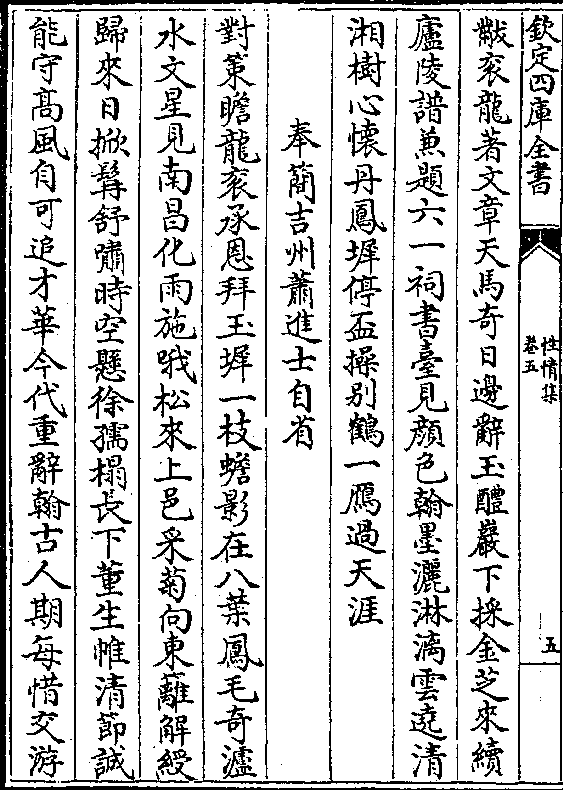 欽定四庫全書
性情集
卷五
五
黻衮龍著文章天馬奇日邊辭玉醴巖下採金芝來續
廬陵譜兼題六一祠書臺見顔色翰墨灑淋漓雲遶清
湘樹心懷丹鳳墀停盃操别鶴一鴈過天涯
奉蕳吉州蕭進士自省
對策瞻龍衮承恩拜玉墀一枝蟾影在八葉鳳毛奇瀘
水文星見南昌化雨施哦松來上邑采菊向東籬解綬
歸來日掀髯舒嘯時空懸徐孺榻長下董生帷清節誠
能守髙風自可追才華今代重辭翰古人期每惜交游